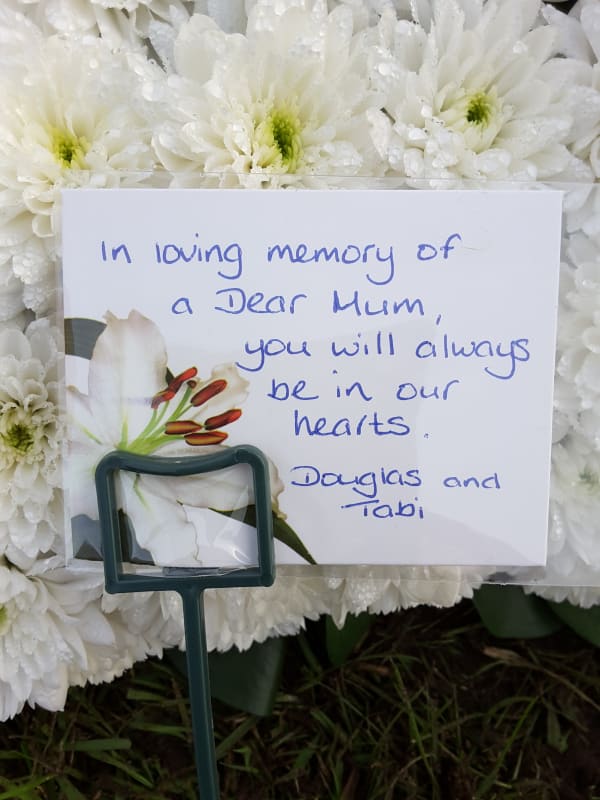 In loving memory of
a Dear Mum,
you will always
be in our
hearts.
Douglas and
Tabi